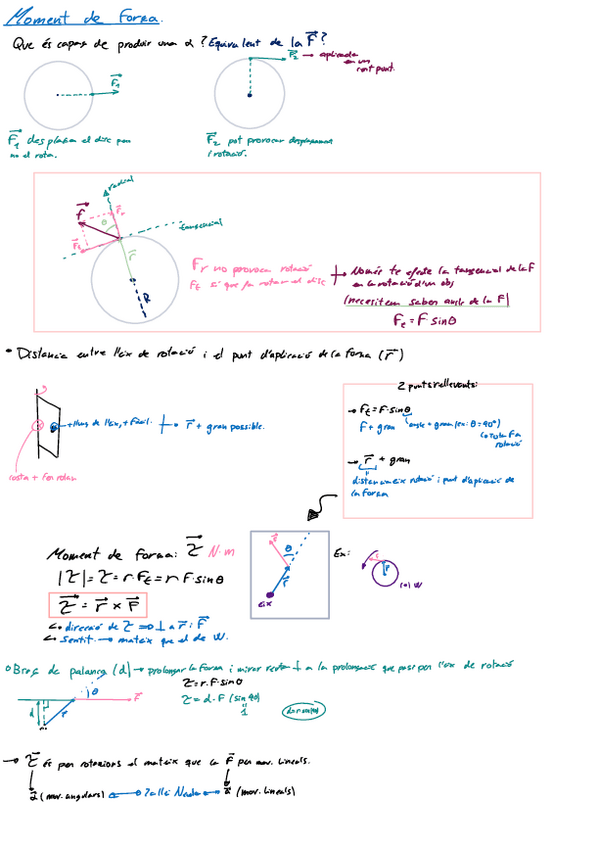 Moment de Força.
Que és capaç de produir una α? Equivalent de la F?
F₁
F₂ → aplicada
en un
cert punt.
F₁ desplaça el disc però
no el rota.
F₂ pot provocar desplaçament
i rotació.
radial
F
Fr
θ
tangencial
Ft
r
R
Fr no provoca rotació
Ft sí que fa rotar el disc
Només té efecte la tangencial de la F
en la rotació d'un obj
(necesitem saber angle de la F)
Ft = F·sinθ
• Distància entre l'eix de rotació i el punt d'aplicació de la força (r)
+ lluny de l'eix, + fàcil.
r + gran possible.
costa + fer rotar
2 punts rellevants:
→ Ft = F·sinθ
F + gran
angle + gran (ex: θ = 90°)
Tota F a
rotació
→ r + gran
distància eix rotació i punt d'aplicació de
la força
Moment de força: τ N·m
|τ| = τ = r Ft = r F·sinθ
τ = r × F
direcció de τ ⇒ ⊥ a r i F
sentit → mateix que el de w.
F
θ
r
Eix
Ex:
F
r
(•) w
Braç de palança (d) → prolongar la força i mirar recta ⊥ a la prolongació que passi per l'eix de rotació
τ = r·F·sinθ
τ = d·F (sin 90)
1
θ
F
d
r
→ τ és per rotacions el mateix que la F per mov. lineals.
α (mov. angulars)
2a llei Newton
a (mov. lineals)